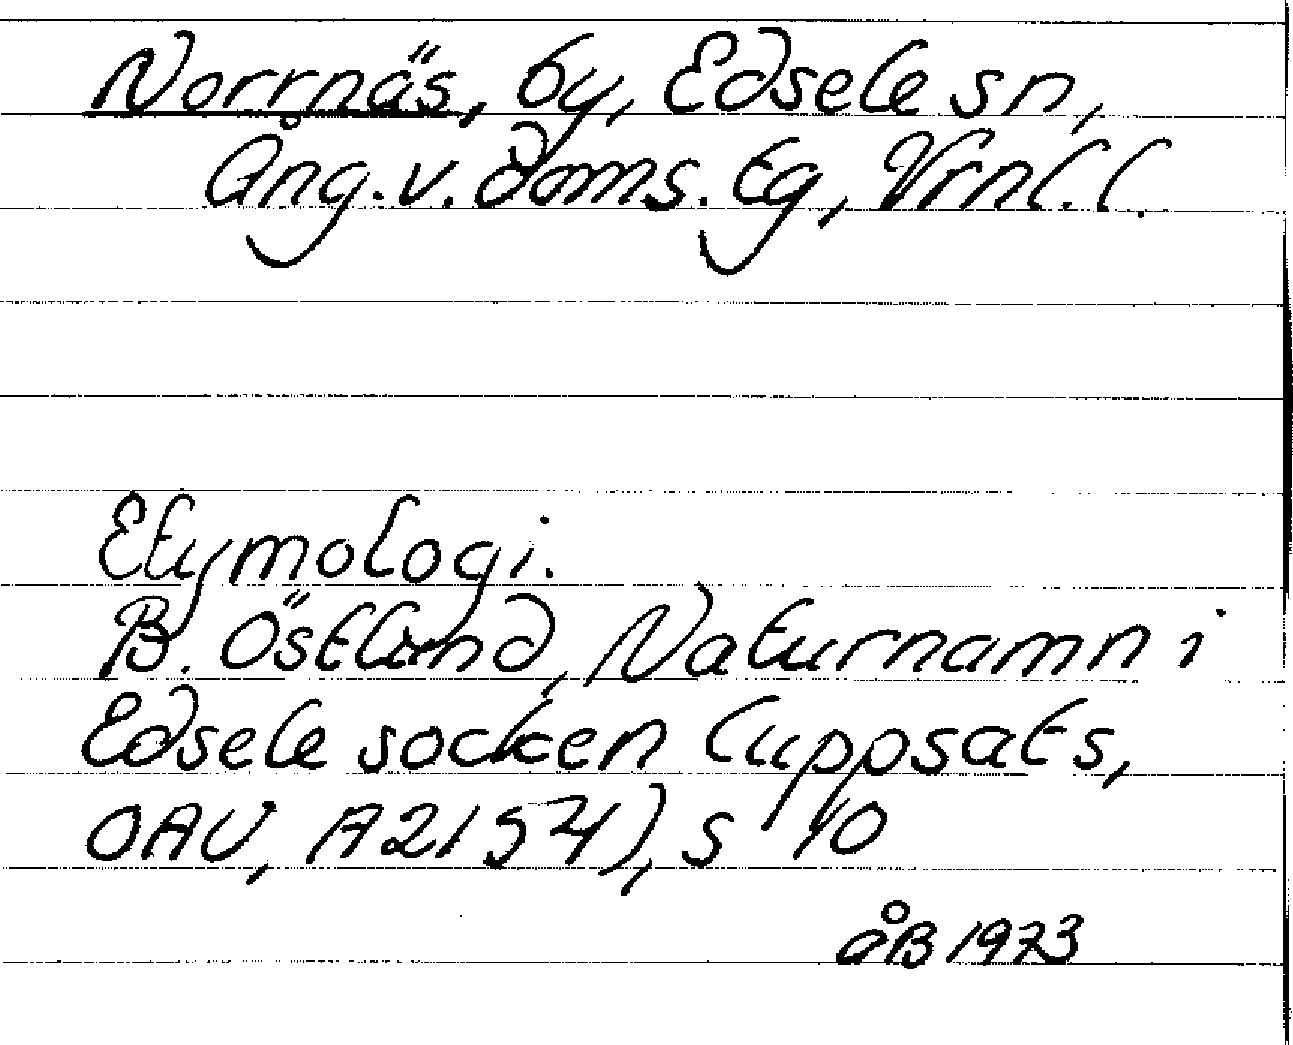 Norrnäs, by, Edsele sn,
Ång.v.doms.tg, Vrnl.l.
Etymologi.
B. Östlund, Naturnamn i
Edsele socken (uppsats,
OAU, A2154), s 10
åB 1973